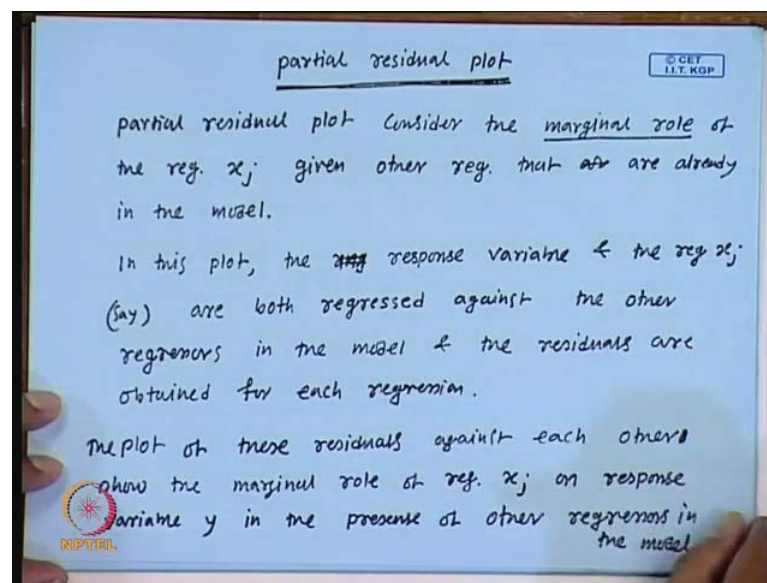 partial residual plot
© CET
I.I.T. KGP
partial residual plot consider the marginal role of
the reg. xj given other reg. that are already
in the model.
In this plot, the response variable & the reg xj
(say) are both regressed against the other
regressors in the model & the residuals are
obtained for each regression.
The plot of these residuals against each other
show the marginal role of reg. xj on response
variable y in the presense of other regressors in
the model
NPTEL